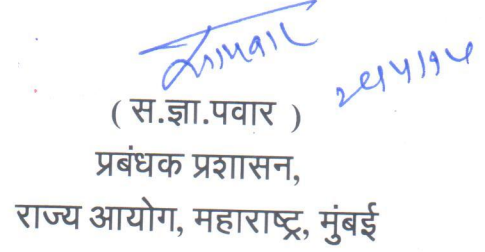 ( स.ज्ञा.पवार )
प्रबंधक प्रशासन,
राज्य आयोग, महाराष्ट्र, मुंबई